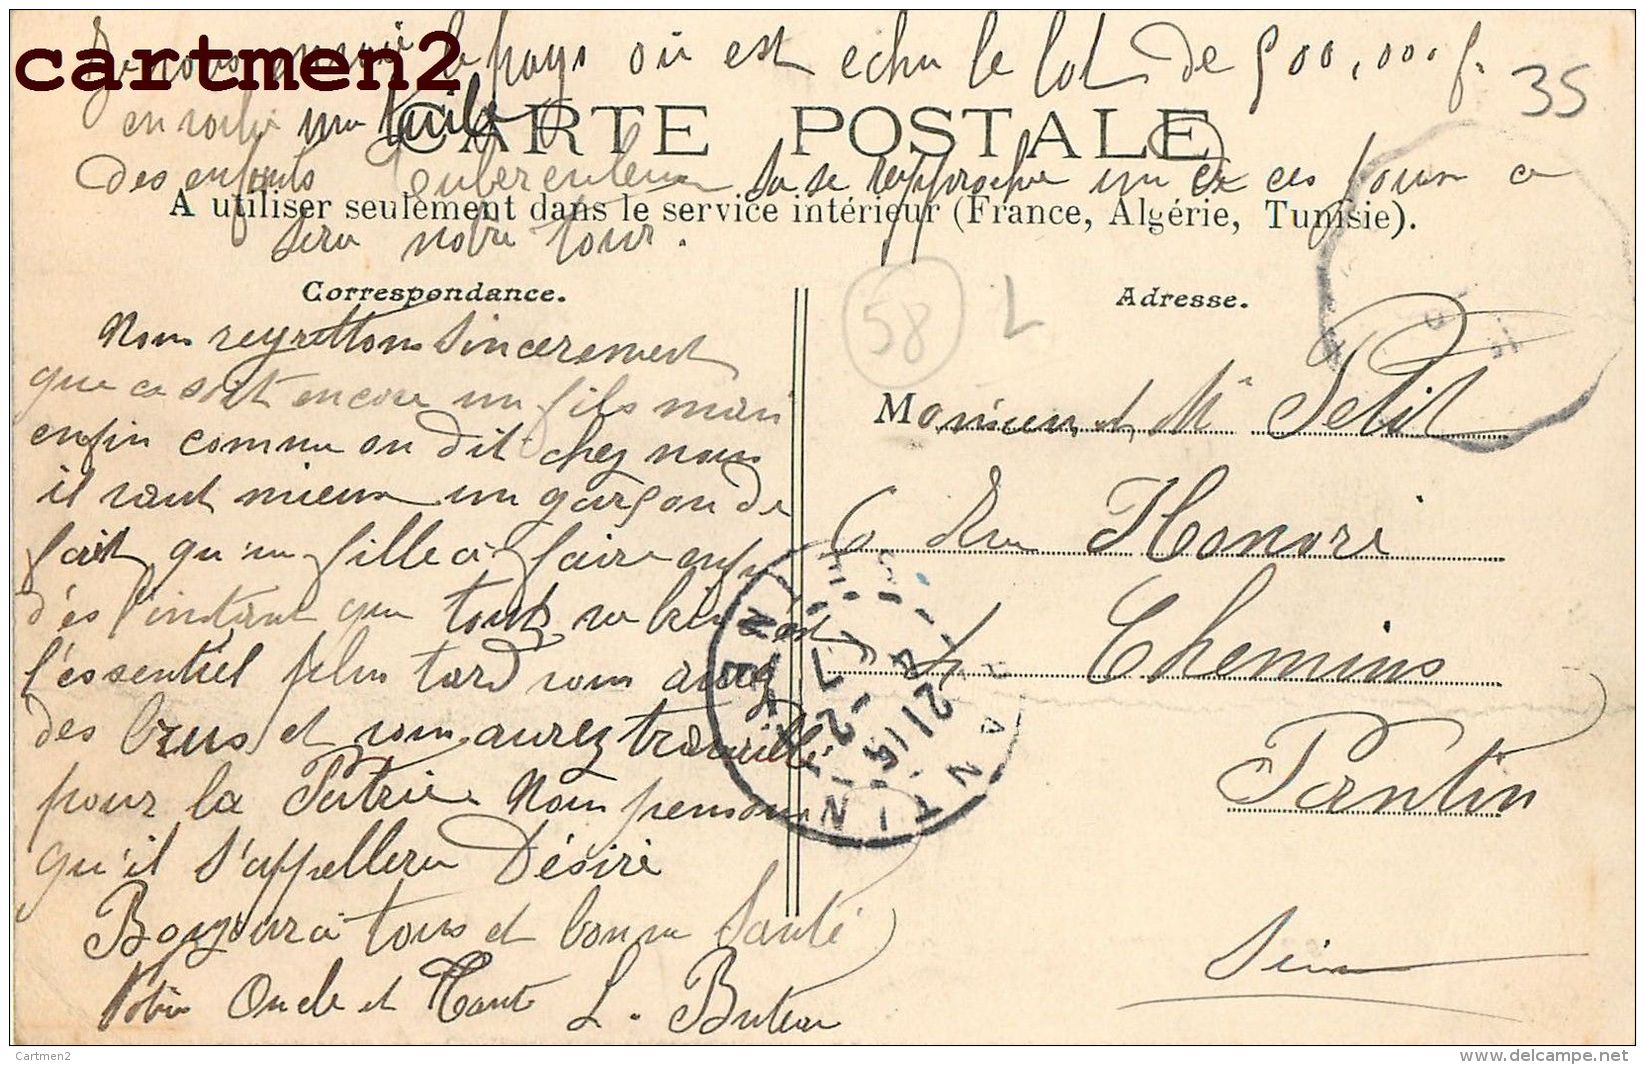 cartmen2
Je vous envoie le pays où est echu le lot de 500,000 f.
en voila une tuile
des enfants Tuberculeux sa se rapproche un de ces jours ce
sera notre tour.
CARTE POSTALE
A utiliser seulement dans le service intérieur (France, Algérie, Tunisie).
35
Correspondance.
58
L
Adresse.
Nous regrettons sincerement
que ce soit encore un fils mais
enfin comme on dit chez nous
il vaut mieux un garçon de
fait qu'un fille à faire enfin
dès l'instant que tout va bien c'est
l'essentiel plus tard vous aurez
des brus et vous aurez travaillé
pour la Patrie Nous pensons
qu'il s'appellera Désiré
Bonjour à tous et bonne Santé
Votre Oncle et Tante L. Buteau
Monsieur et Me Petit
6 Rue Honoré
Les Chemins
Pantin
Seine
PANTIN
SEINE
Cartmen2
www.delcampe.net